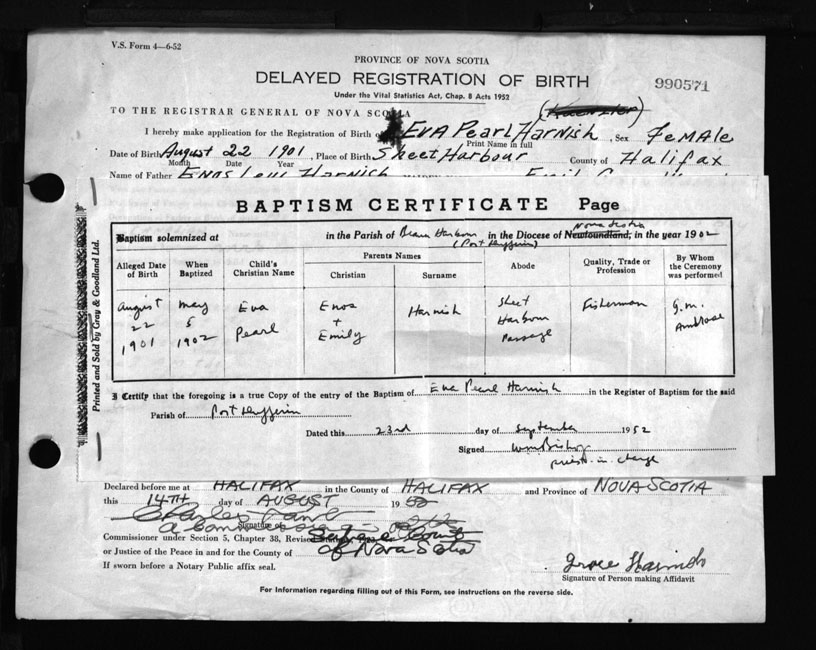 V.S. Form 4—6-52
PROVINCE OF NOVA SCOTIA
DELAYED REGISTRATION OF BIRTH
990571
Under the Vital Statistics Act, Chap. 8 Acts 1952
TO THE REGISTRAR GENERAL OF NOVA SCOTIA
I hereby make application for the Registration of Birth of EVA Pearl HARNISH, Sex FeMAle
Print Name in full
Date of Birth August 22 1901, Place of Birth Sheet HarBour County of Halifax
Month Date Year
Name of Father Enos Harnish
BAPTISM CERTIFICATE Page
Baptism solemnized at in the Parish of Beaver Harbour in the Diocese of Newfoundland, in the year 1902
(Port Dufferin) Nova Scotia
Alleged Date of Birth When Baptized Child's Christian Name Parents Names Abode Quality, Trade or Profession By Whom the Ceremony was performed
Christian Surname
August May Eva Enos Harnish Sheet Fisherman G.M.
22 5 Pearl + Harbour Ambrose
1901 1902 Emily Passage
I Certify that the foregoing is a true Copy of the entry of the Baptism of Eva Pearl Harnish in the Register of Baptism for the said
Parish of Port Dufferin
Dated this 23rd day of September 1952
Signed Wm Bishop
priest-in-charge
Printed and Sold by Gray & Goodland Ltd.
Declared before me at HALIFAX in the County of HALIFAX and Province of NOVA SCOTIA
this 14TH day of AUGUST 1952
Signature of
Commissioner under Section 5, Chapter 38, Revised
or Justice of the Peace in and for the County of of Nova Scotia
If sworn before a Notary Public affix seal.
Grace
Signature of Person making Affidavit
For Information regarding filling out of this Form, see instructions on the reverse side.